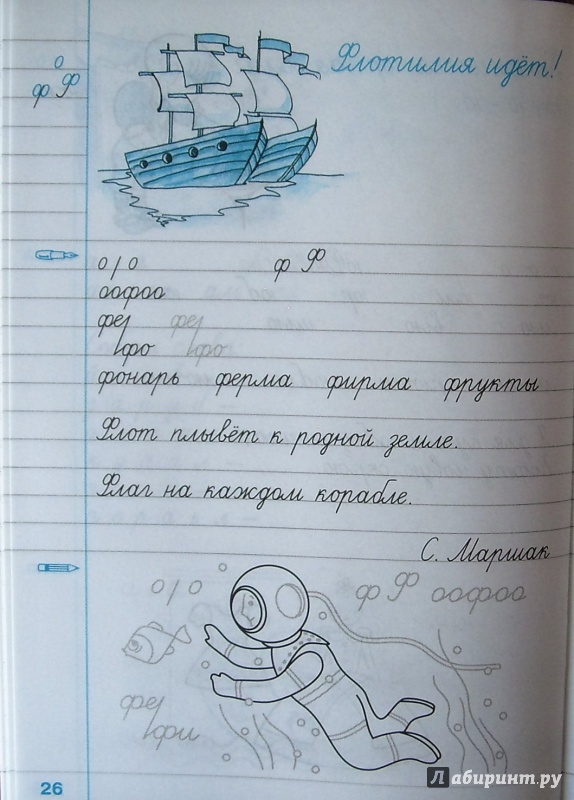 Флотилия идёт!
о
ф Ф
о / о ф Ф
оофоо
фе фе
фо фо
фонарь ферма фирма фрукты
Флот плывёт к родной земле.
Флаг на каждом корабле.
С. Маршак
о / о ф Ф оофоо
фе
фи
26
Лабиринт.ру